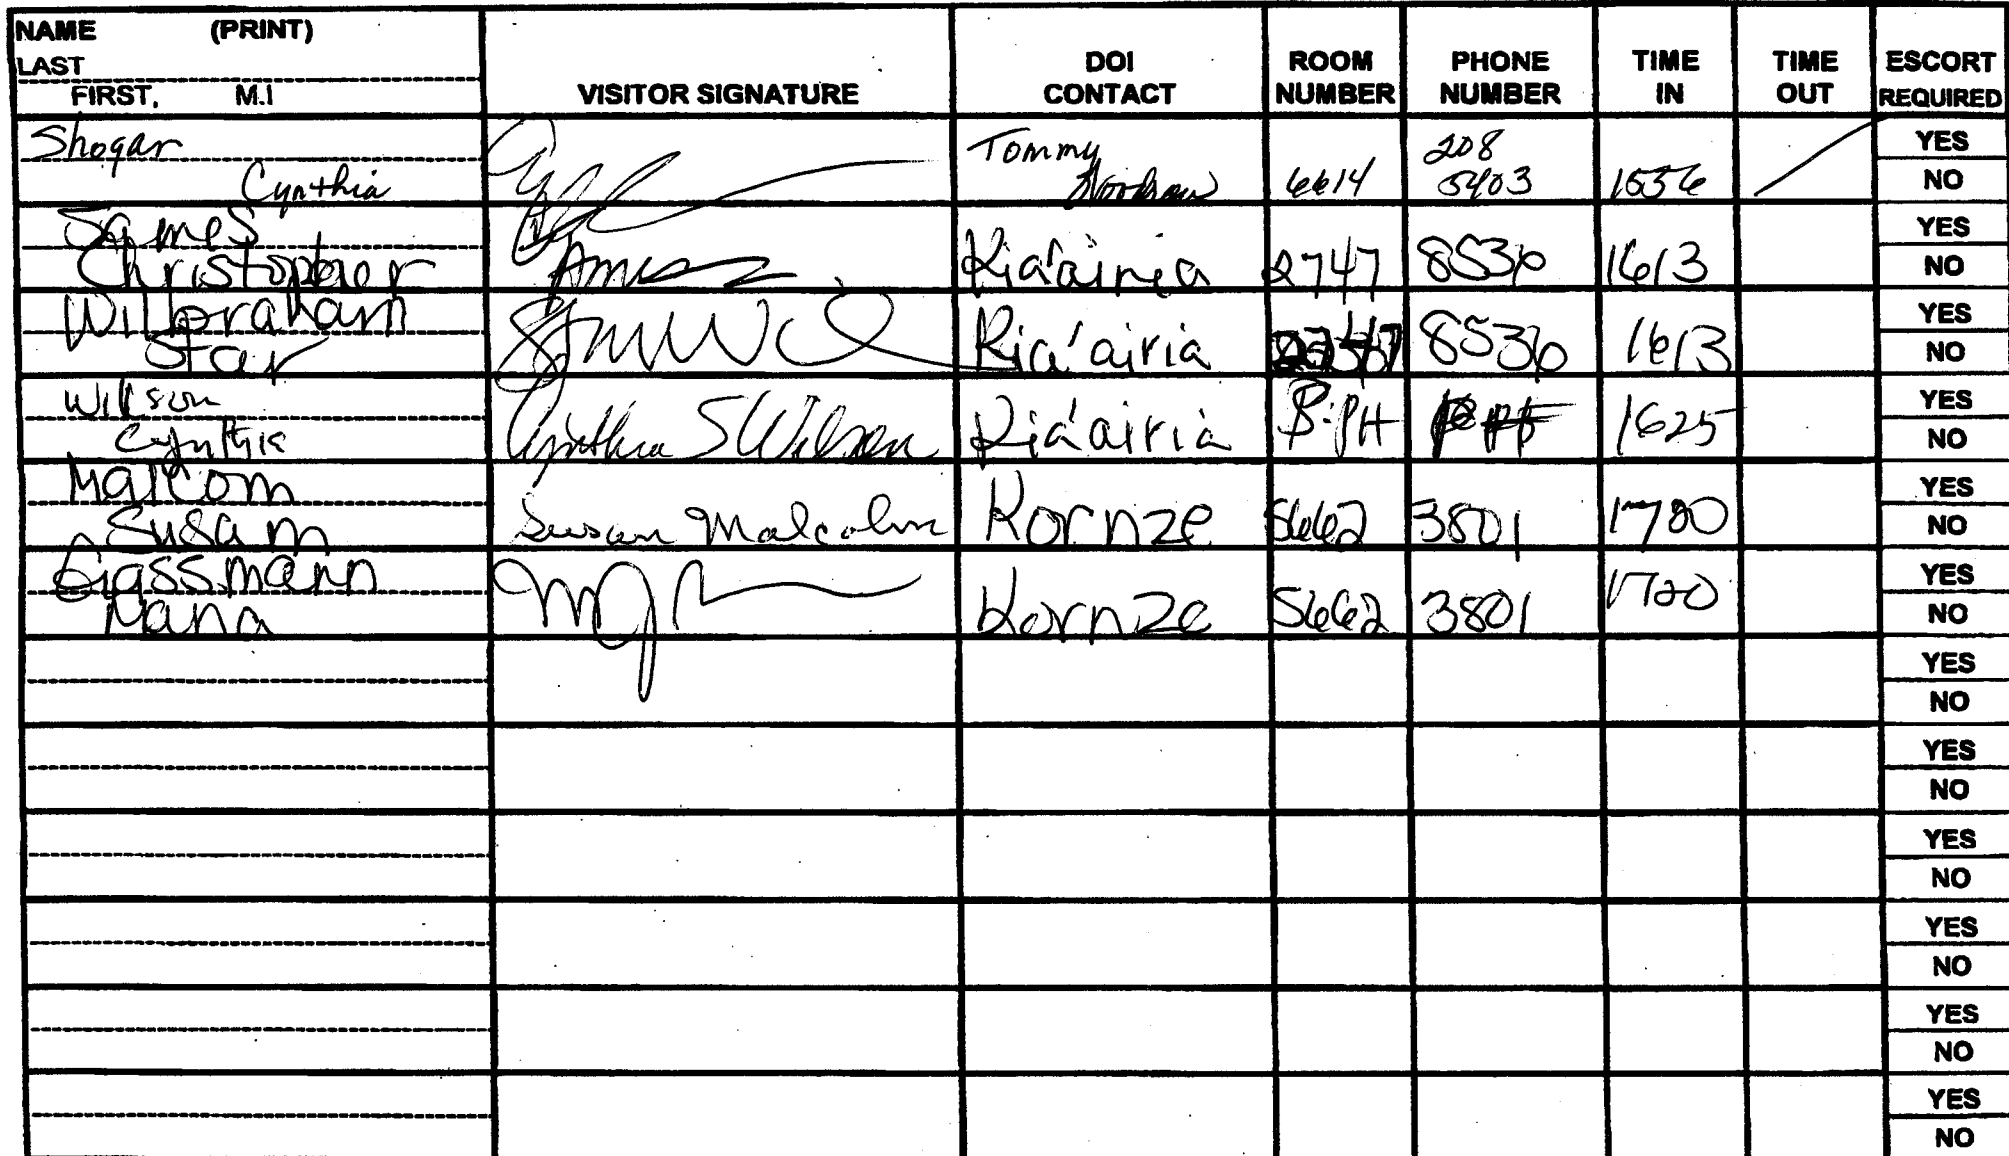 NAME (PRINT)
LAST
FIRST, M.I
VISITOR SIGNATURE
DOI CONTACT
ROOM NUMBER
PHONE NUMBER
TIME IN
TIME OUT
ESCORT REQUIRED
Shogar
Cynthia
Tommy
6614
208
5403
1556
YES
NO
James
Christopher
Ria'airia
2747
8536
1613
YES
NO
Wilbraham
Star
Ria'airia
8536
1613
YES
NO
Wilson
Cynthia
Cynthia S Wilson
Ria'airia
1625
YES
NO
Malcom
Susan
Susan Malcolm
Kornze
5662
3801
YES
NO
Gassmann
Kornze
5662
3801
1720
YES
NO
YES
NO
YES
NO
YES
NO
YES
NO
YES
NO
YES
NO